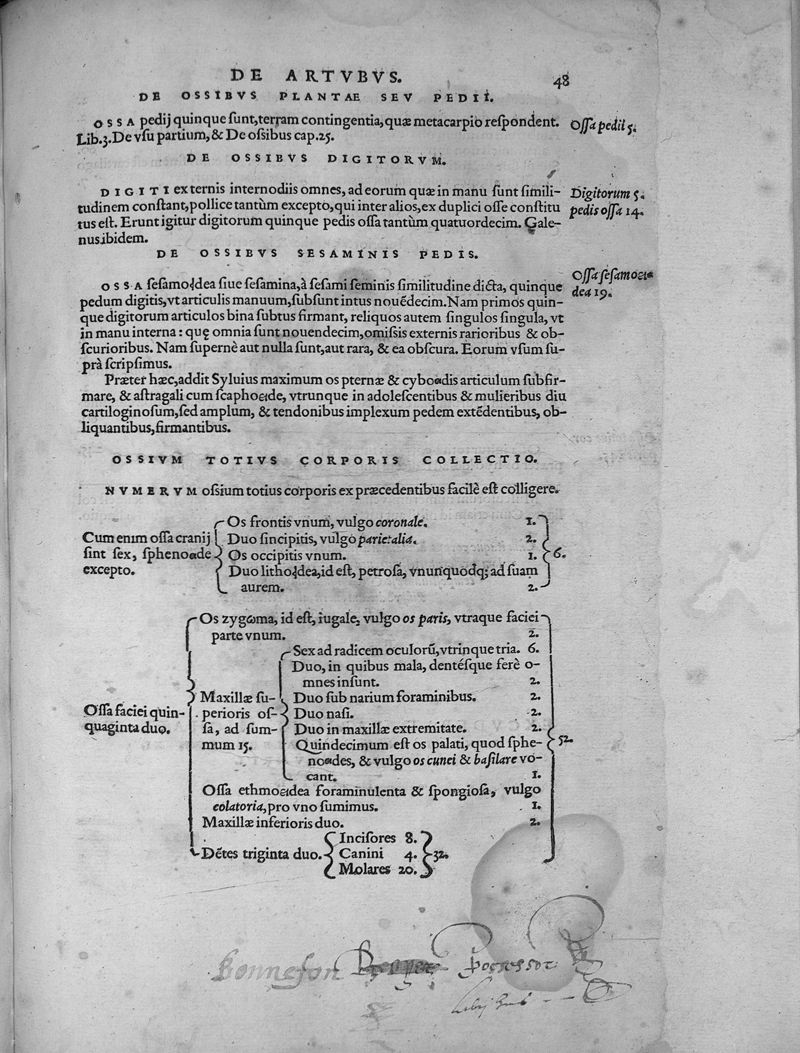 DE ARTVBVS.
48
DE OSSIBVS PLANTAE SEV PEDII.
OSSA pedij quinque ſunt, terram contingentia, quæ metacarpio reſpondent.
Oſſa pedii 5.
Lib.3. De vſu partium, & De oſsibus cap.25.
DE OSSIBVS DIGITORVM.
DIGITI externis internodiis omnes, ad eorum quæ in manu ſunt ſimili-
Digitorum 5.
tudinem conſtant, pollice tantùm excepto, qui inter alios, ex duplici oſſe conſtitu
pedis oſſa 14.
tus eſt. Erunt igitur digitorum quinque pedis oſſa tantùm quatuordecim. Gale-
nus ibidem.
DE OSSIBVS SESAMINIS PEDIS.
OSSA ſeſamoɩdea ſiue ſeſamina, à ſeſami ſeminis ſimilitudine dicta, quinque
Oſſa ſeſamoɛι-
pedum digitis, vt articulis manuum, ſubſunt intus nouẽdecim. Nam primos quin-
dea 19.
que digitorum articulos bina ſubtus firmant, reliquos autem ſingulos ſingula, vt
in manu interna: quę omnia ſunt nouendecim, omiſsis externis rarioribus & ob-
ſcurioribus. Nam ſupernè aut nulla ſunt, aut rara, & ea obſcura. Eorum vſum ſu-
prà ſcripſimus.
Præter hæc, addit Syluius maximum os pternæ & cyboɛιdis articulum ſubfir-
mare, & aſtragali cum ſcaphoɛιde, vtrunque in adoleſcentibus & mulieribus diu
cartiloginoſum, ſed amplum, & tendonibus implexum pedem extẽdentibus, ob-
liquantibus, firmantibus.
OSSIVM TOTIVS CORPORIS COLLECTIO.
NVMERVM oſsium totius corporis ex præcedentibus facilè eſt colligere.
Os frontis vnum, vulgo coronale. 1.
Cum enim oſſa cranij
Duo ſincipitis, vulgo parietalia. 2.
ſint ſex, ſphenoɛιde
Os occipitis vnum. 1.
6.
excepto.
Duo lithoɩdea, id eſt, petroſa, vnunquodq; ad ſuam
aurem. 2.
Os zygωma, id eſt, iugale, vulgo os paris, vtraque faciei
parte vnum. 2.
Sex ad radicem oculorũ, vtrinque tria. 6.
Duo, in quibus mala, dentéſque ferè o-
mnes inſunt. 2.
Maxillæ ſu-
Duo ſub narium foraminibus. 2.
Oſſa faciei quin-
perioris oſ-
Duo naſi. 2.
quaginta duo.
ſa, ad ſum-
Duo in maxillæ extremitate. 2.
mum 15.
Quindecimum eſt os palati, quod ſphe-
52.
noɛιdes, & vulgo os cunei & baſilare vo-
cant. 1.
Oſſa ethmoɛιdea foraminulenta & ſpongioſa, vulgo
colatoria, pro vno ſumimus. 1.
Maxillæ inferioris duo. 2.
Inciſores 8.
Dẽtes triginta duo.
Canini 4.
32.
Molares 20.
Bonnefon
Possessor